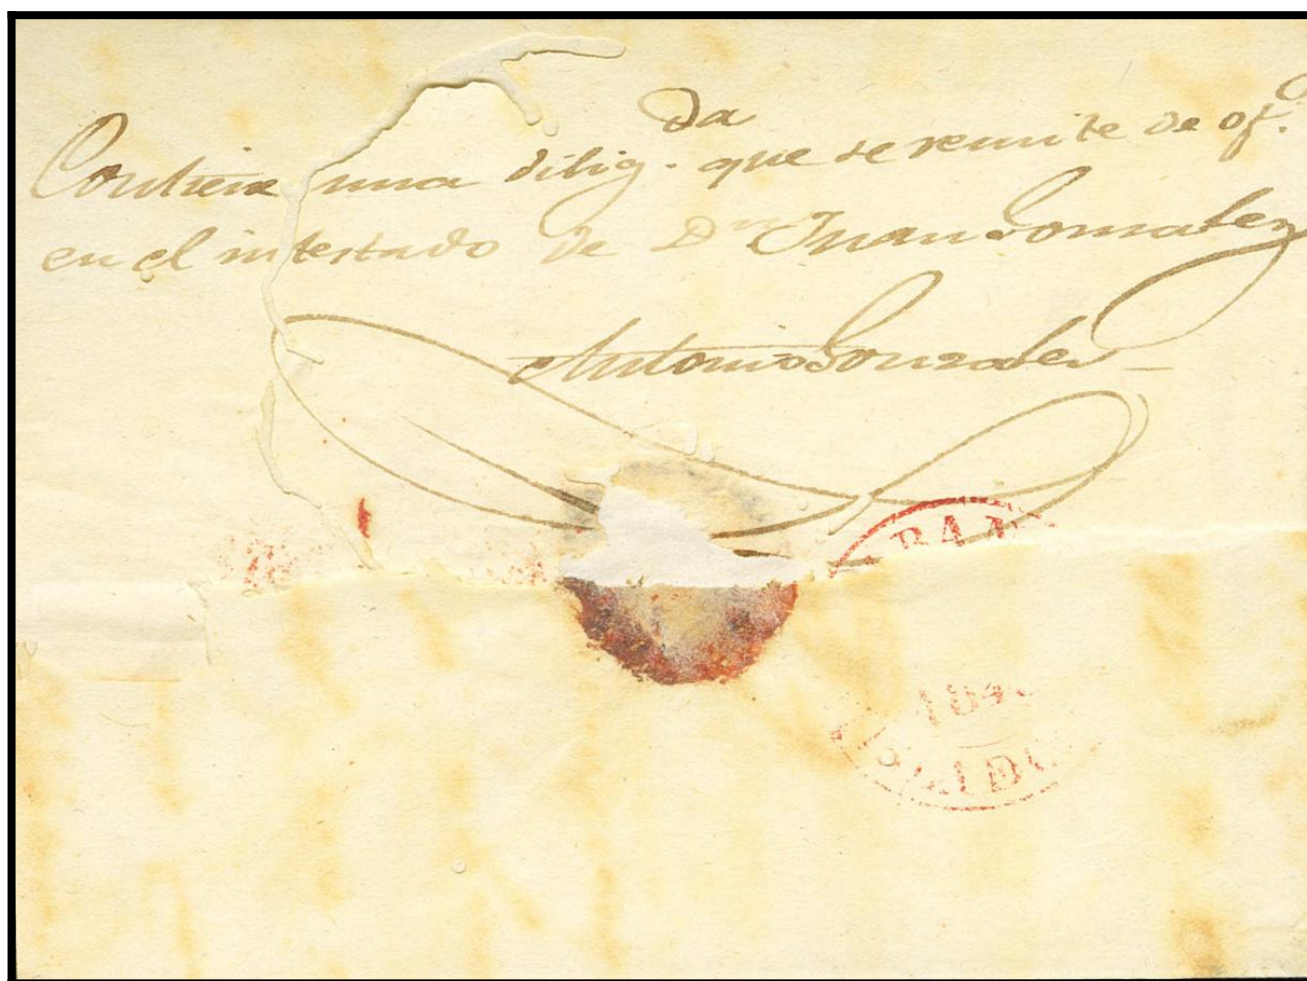 da
Contiene una dilig. que se remite de of.o
en el intestado de Dn Juan Gonzalez
Antonio Gonzalez
BA
184